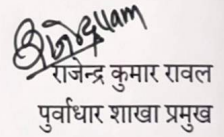 राजेन्द्र कुमार रावल
पुर्वाधार शाखा प्रमुख